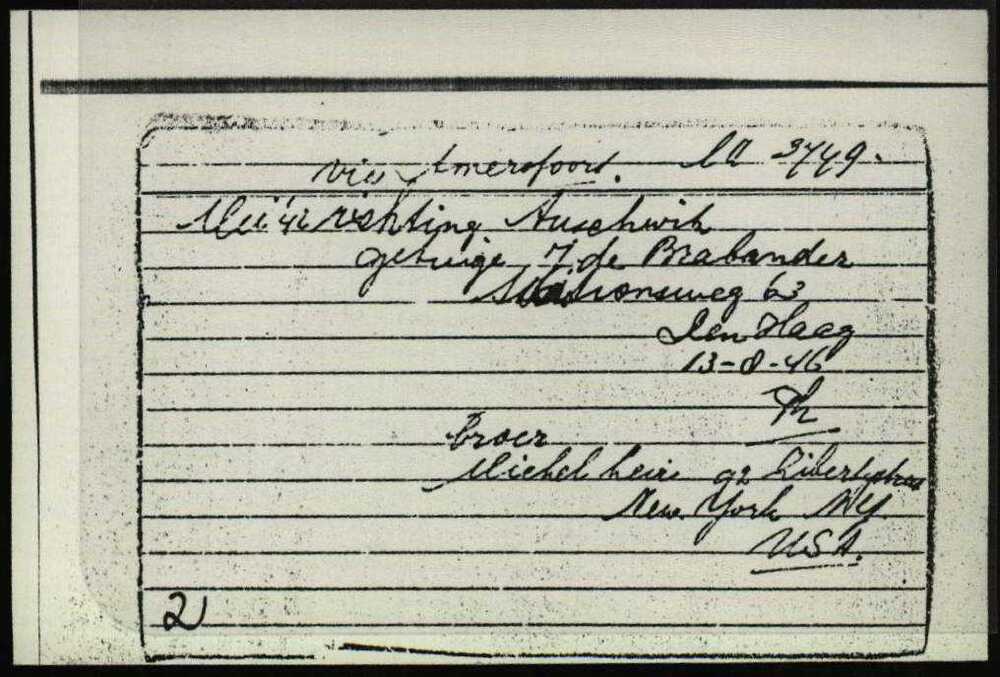 via Amersfoort. 3749.
Mei '42 richting Auschwitz
getuige J. de Brabander
Stationsweg 63
Den Haag
13-8-46
broer
Michel 92 Libertystreet
New York NY
USA.
2